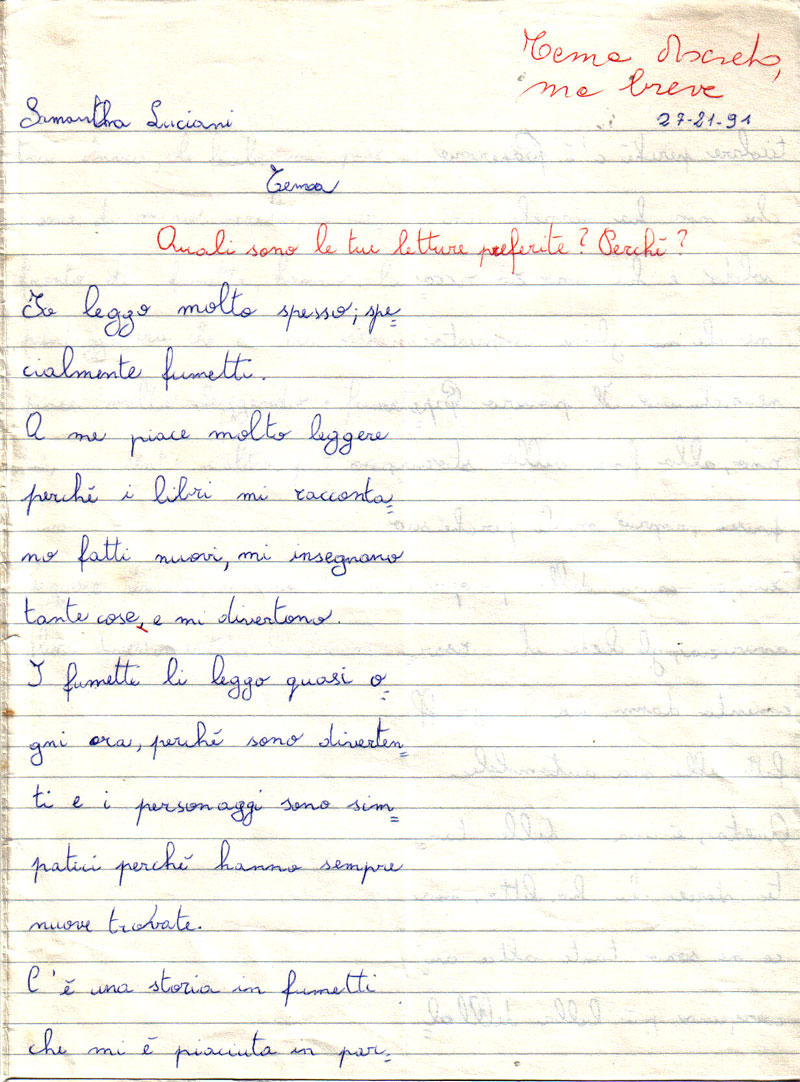 Tema discreto,
ma breve
Samantha Luciani
27-21-91
Tema
Quali sono le tue letture preferite? Perché?
Io leggo molto spesso; spe=
cialmente fumetti.
A me piace molto leggere
perché i libri mi racconta=
no fatti nuovi, mi insegnano
tante cose, e mi divertono.
I fumetti li leggo quasi o=
gni ora, perché sono diverten=
ti e i personaggi sono sim=
patici perché hanno sempre
nuove trovate.
C'è una storia in fumetti
che mi è piaciuta in par=